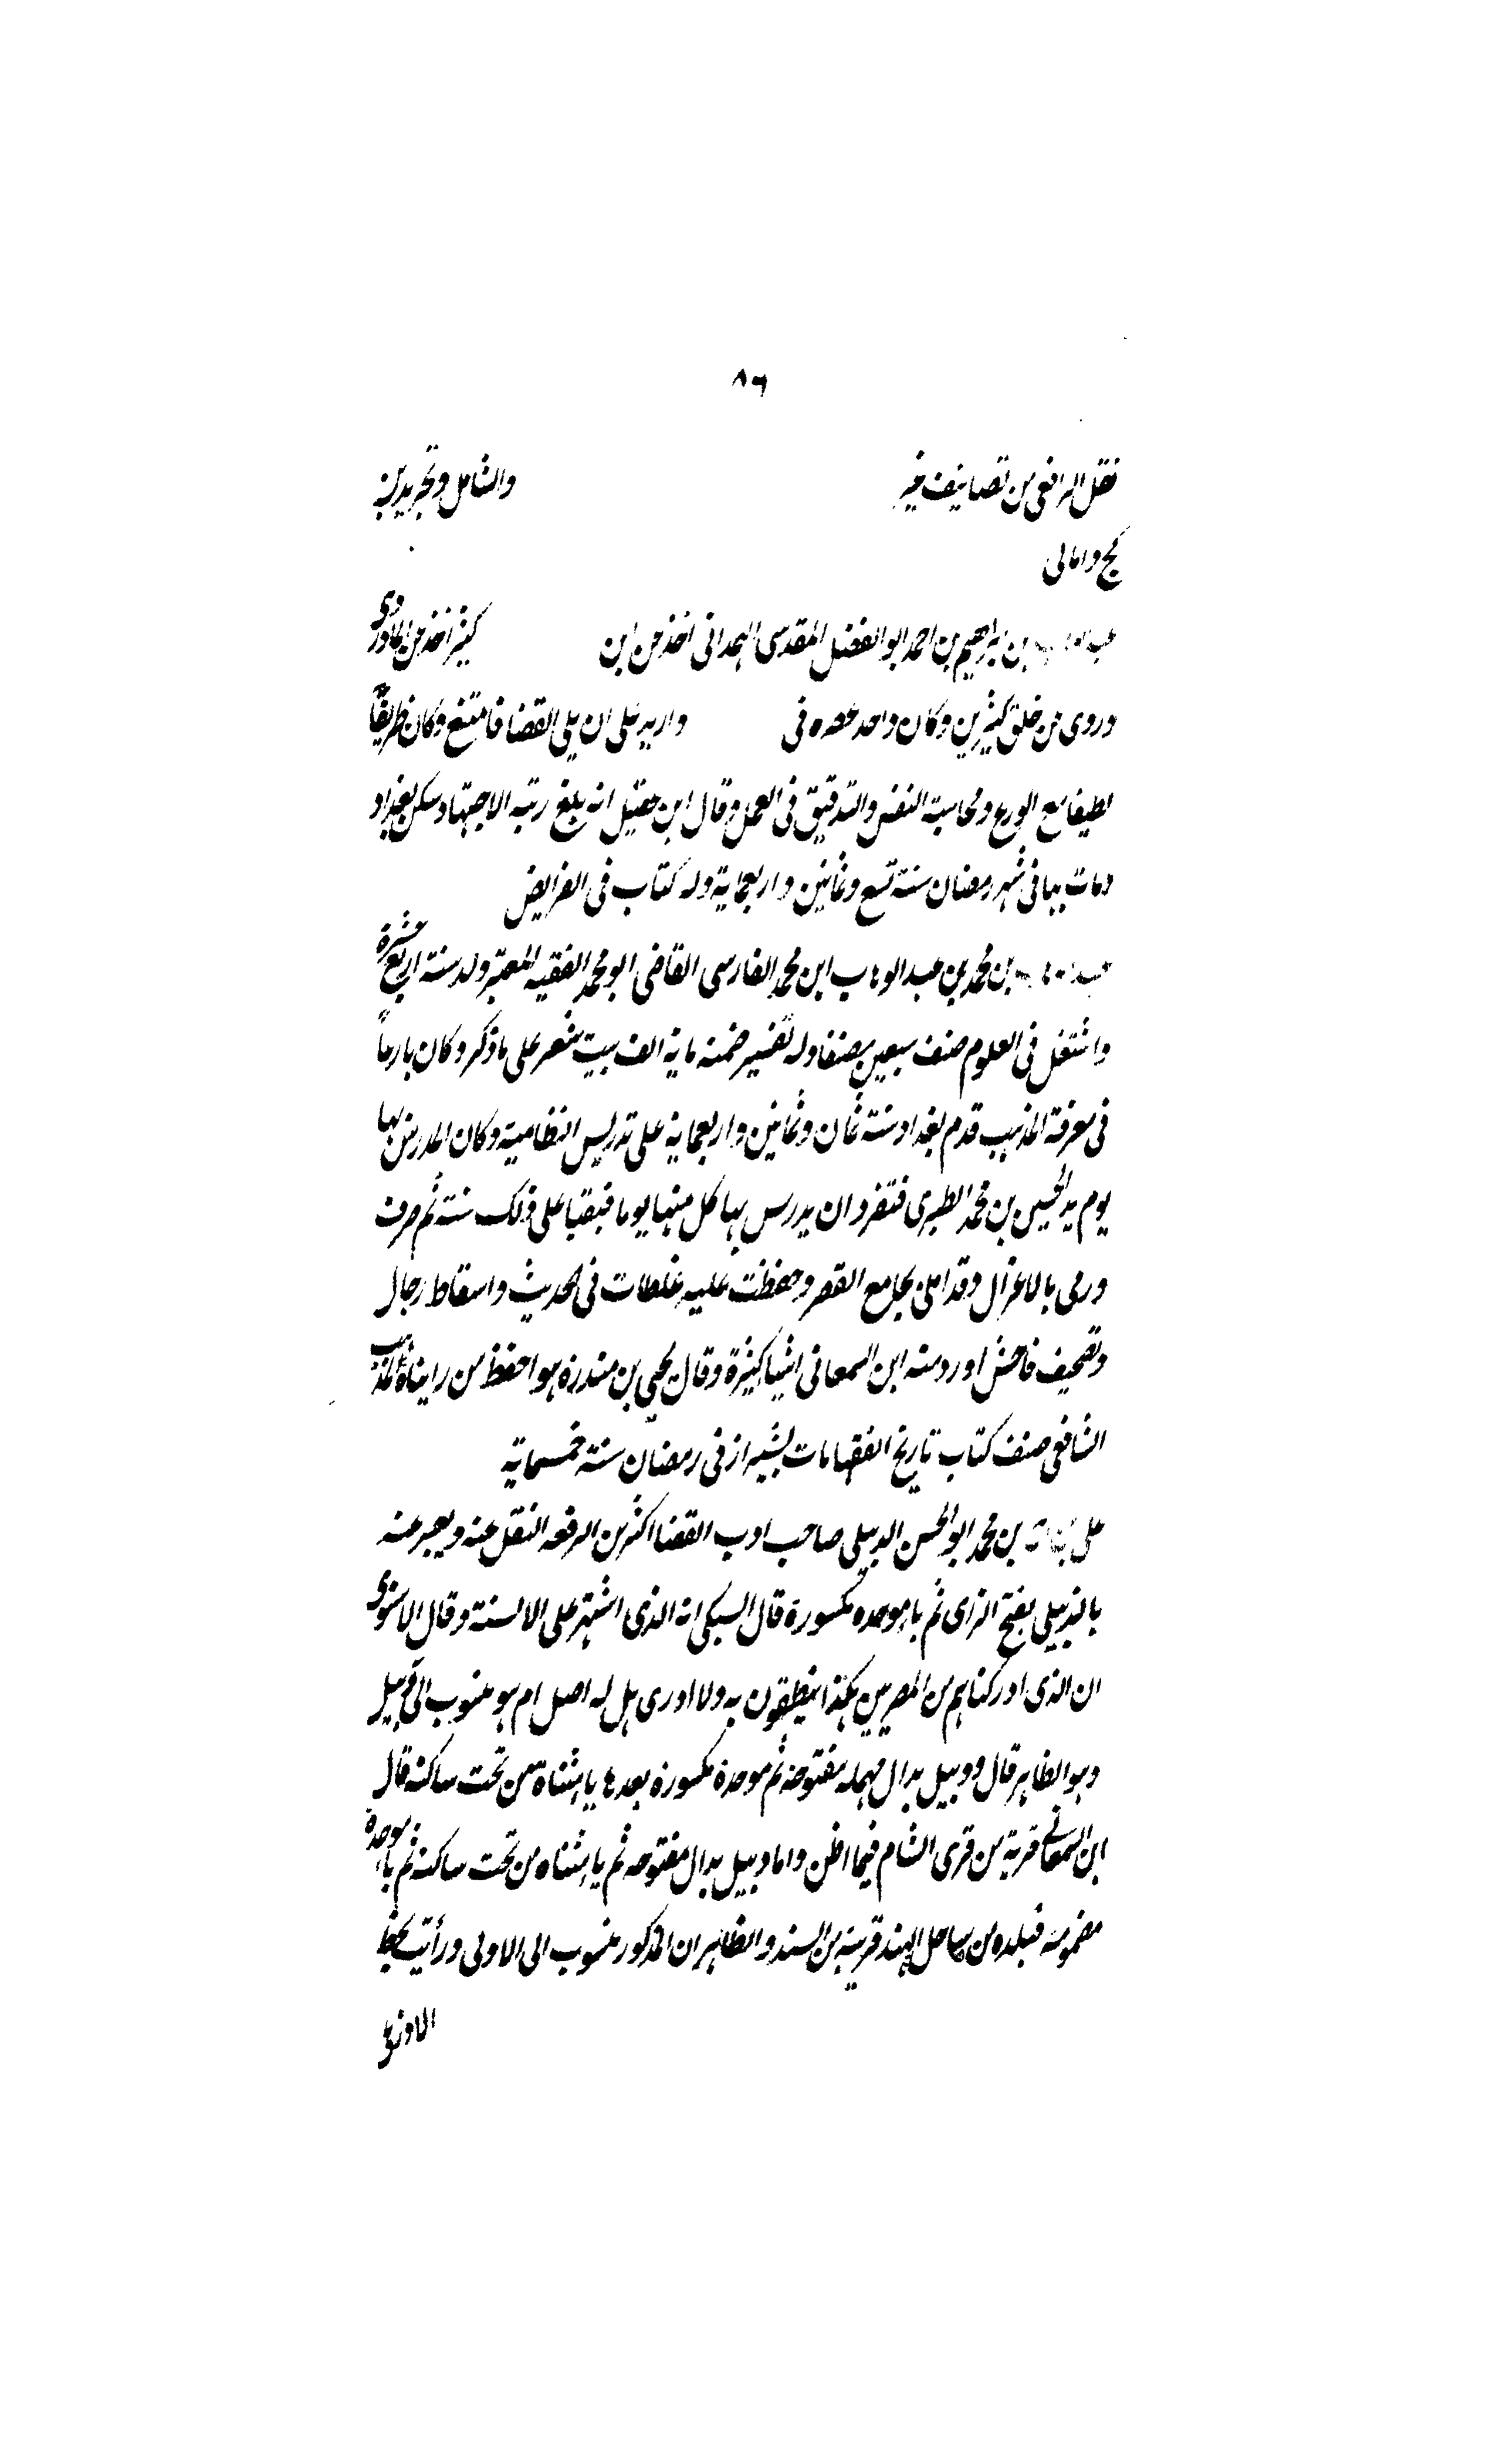 ٨٦
نقل الرافعی من تصانیف خیر والشامل وتجرید بن
کج وامالی
بن ابراهیم بن احمد ابو الفضل المقدسی الهمدانی اخذ من ابن کثیر اخذ من الماوردی
وروی من خلق کثیرین وکان واحد عصره فی وارید علی ان یلی القضا فامتنع وکان ظریفًا
لطیفا مع الورع ومحاسبة النفس والتدقیق فی العمل وقال ابن عقیل انه بلغ رتبه الاجتهاد سکن بغداد
ومات بها فی شهر رمضان سنة تسع وثمانین واربعمایة وله کتاب فی الفرایض
بن محمد بن عبد الوهاب ابن محمد الفارسی القاضی ابو محمد الفقیه المعبر ولد سنة اربع عشرة
واشتغل فی العلوم صنف سبعین مصنفا وله تفسیر ضمنه مایة الف بیت شعر علی ما ذکر وکان بارعاً
فی معرفة المذهب قدم بغداد سنة ثمان وثمانین واربعمایة علی تدریس النظامیة وکان المدرس بها
یوم ید الحسین بن محمد الطبری فتفرد ان یدرس بها کل منهما یوما فبقیا علی ذلک سنة ثم صرف
ورمی بالاعزال وقد املی بجامع القصر وحفظت علیه غلطات فی الحدیث واسقاط رجال
وتصحیف فاحش اورد منه ابن السمعانی اشیا کثیرة وقال یحیی بن مندرة هو احفظ من رایناه لمذهب
الشافعی صنف کتاب تاریخ الفقها مات بشیراز فی رمضان سنة خمسمایة
علی بن احمد بن محمد ابو الحسن الدبیلی صاحب ادب القضا اکثر من الرفعه النقل عنه ویعبر عنه
بالزبیلی بفتح الزای ثم باء موحده مکسورة قال السبکی انه الذی اشتهر علی الالسنة وقال الاسنوی
ان الذی ادرکناهم من المصریین هکذا ینطقون به ولا ادری هل له اصل ام هو منسوب الی دبیل
وهو الظاهر قال ودبیل بدال مهمله مفتوحه ثم موحدة مکسورة بعدها یاء مثناة من تحت ساکنه قال
ابن السمعانی قریة من قری الشام فیما اظن واما دیبل بدال مفتوحه ثم یاء مثناه من تحت ساکنه ثم باء موحدة
مضمومة فبلده من ساحل الهند قریبة من السند والظاهر ان المذکور منسوب الی الاولی ورأیت بخط
الاذرعی